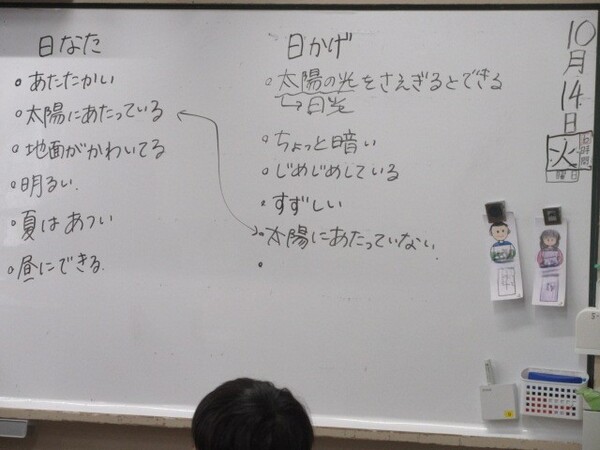 日なた
・あたたかい
・太陽にあたっている
・地面がかわいてる
・明るい
・夏はあつい
・昼にできる
日かげ
・太陽の光をさえぎるとできる
→日光
・ちょっと暗い
・じめじめしている
・すずしい
・太陽にあたっていない
・
10月14日
火
曜日